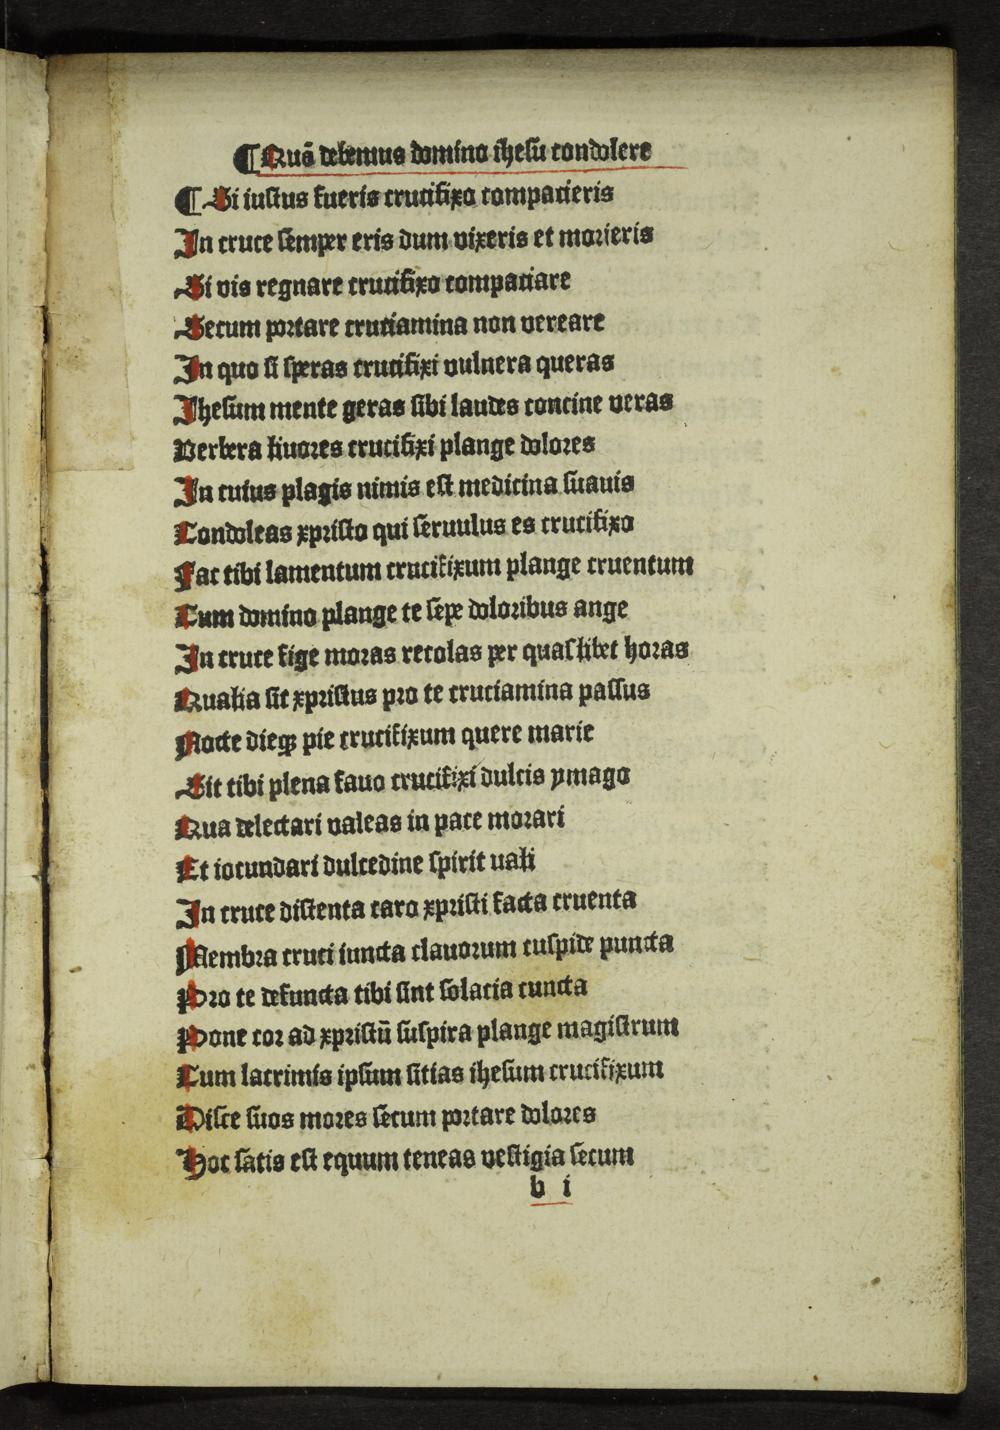 ¶ Quō debemus domino ihesu condolere
¶ Si iustus fueris crucifixo compacieris
In cruce semper eris dum vixeris et morieris
Si vis regnare crucifixo compaciare
Secum portare cruciamina non vereare
In quo si speras crucifixi vulnera queras
Ihesum mente geras sibi laudes concine veras
Verbera liuores crucifixi plange dolores
In cuius plagis nimis est medicina suauis
Condoleas xpristo qui seruulus es crucifixo
Fac tibi lamentum crucifixum plange cruentum
Cum domino plange te sepe doloribus ange
In cruce fige moras recolas per quaslibet horas
Qualia sit xpristus pro te cruciamina passus
Nocte dieqꝫ pie crucifixum quere marie
Sit tibi plena fauo crucifixi dulcis ymago
Qua delectari valeas in pace morari
Et iocundari dulcedine spirit uali
In cruce distenta caro xpristi facta cruenta
Membra cruci iuncta clauorum cuspide puncta
Pro te defuncta tibi sint solacia cuncta
Pone cor ad xpristū suspira plange magistrum
Cum lacrimis ipsum sitias ihesum crucifixum
Disce suos mores secum portare dolores
Hoc satis est equum teneas vestigia secum
b i